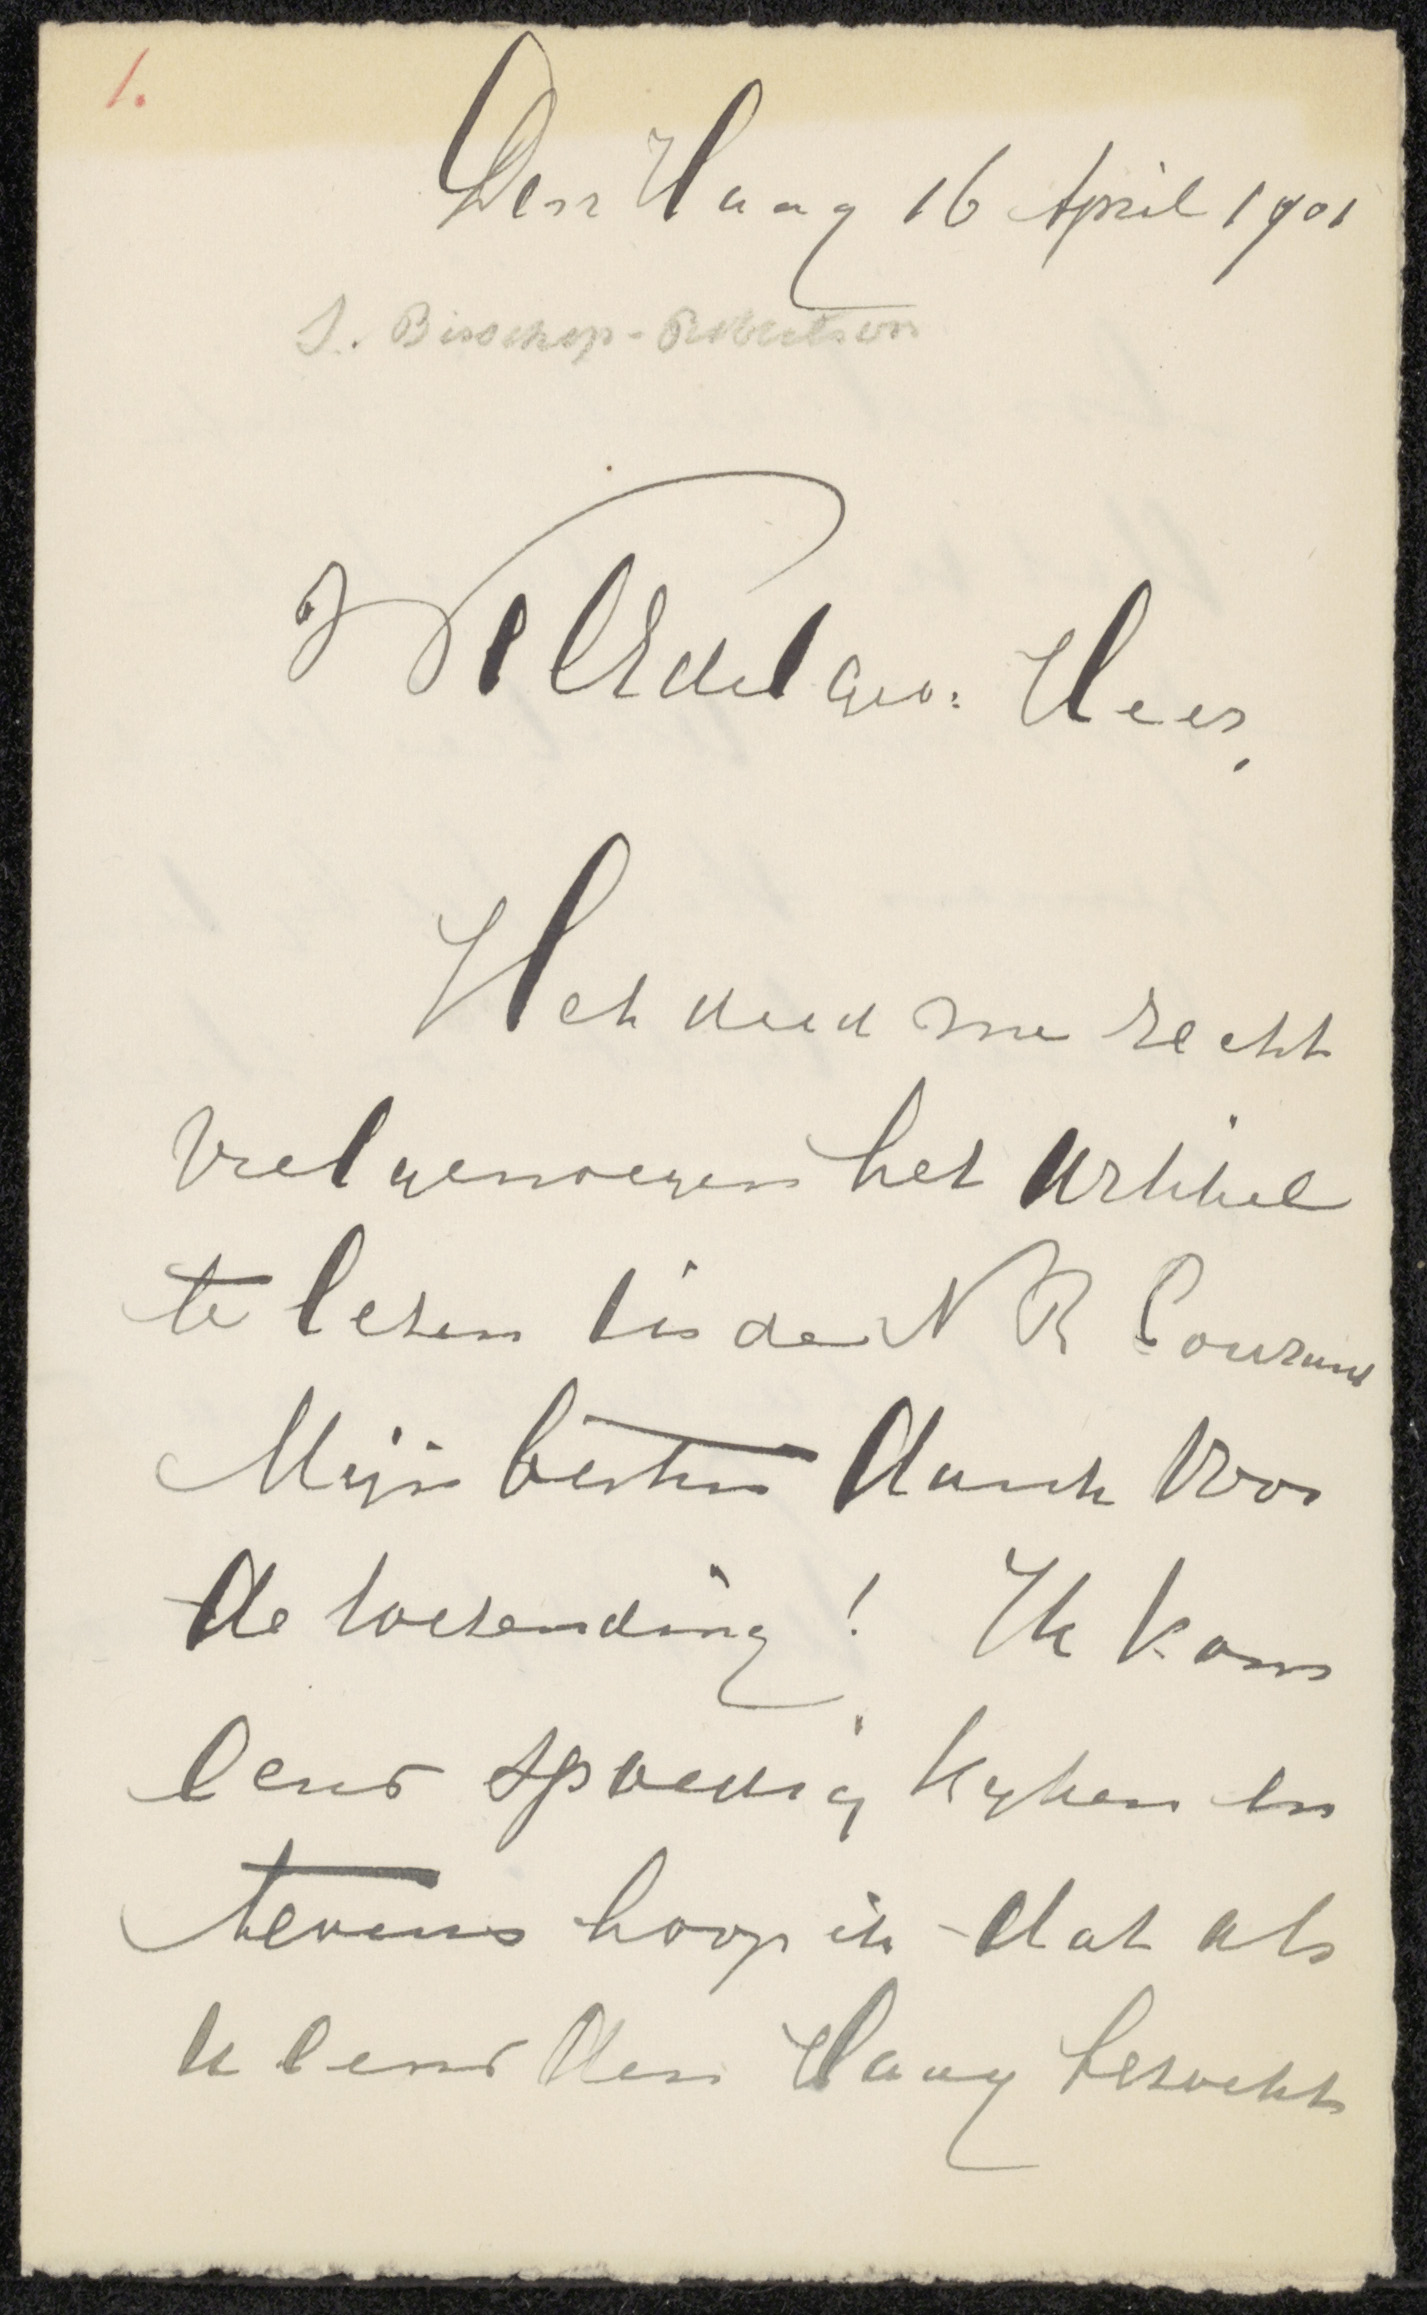 1.
Den Haag 16 April 1901
S. Bisschop-Robertson
WelEdelgeb: Heer,
Het deed me recht
veel genoegen het artikel
te lezen in de N R Courant
Mijn besten dank voor
de toezending! Ik kom
eens spoedig kyken en
tevens hoop ik dat als
U eens den Haag bezoekt